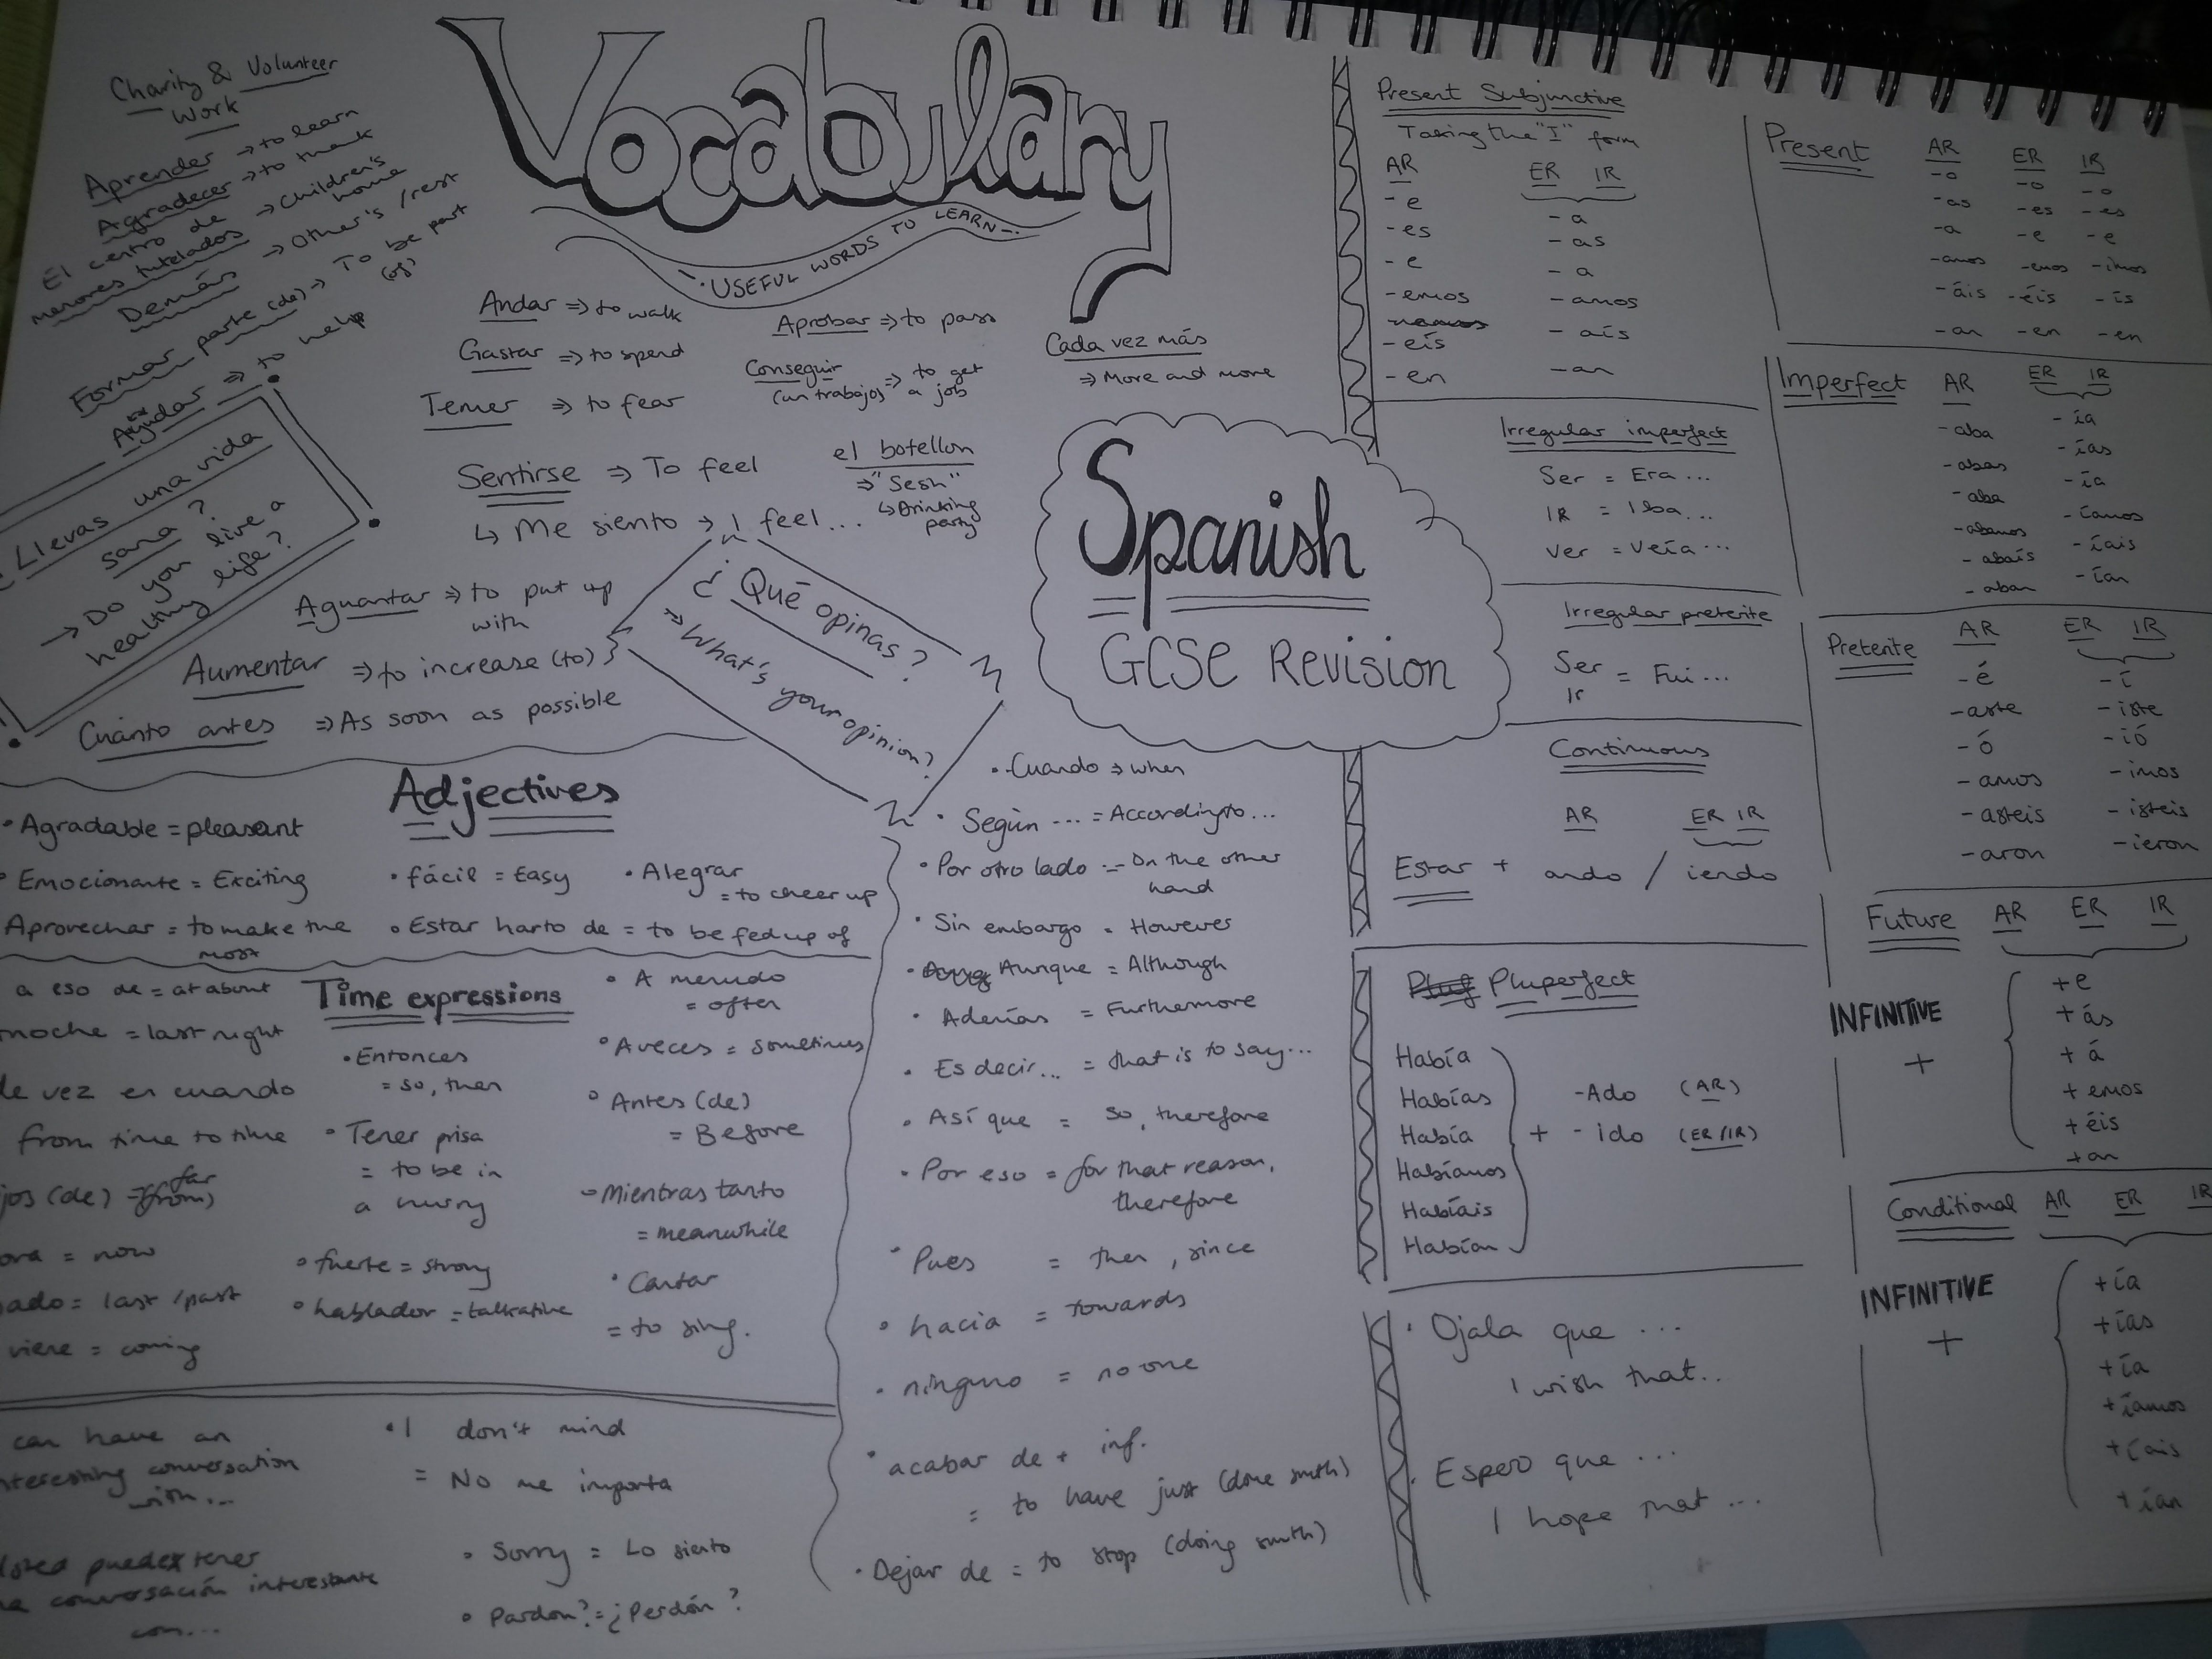 Vocabulary
USEFUL WORDS TO LEARN
Charity & Volunteer
Work
Aprender => to learn
Agradecer => to thank
El centro de
menores tutelados => children's home
Demás => Other's / rest
Formar parte (de) => To be part (of)
Ayudar => to help
Llevas una vida
sana?
→ Do you live a
healthy life?
Andar => to walk
Gastar => to spend
Temer => to fear
Aprobar => to pass
Conseguir
(un trabajos) => to get
a job
Cada vez más
=> More and more
Sentirse => To feel
↳ Me siento → I feel...
el botellon
=> "Sesh"
↳ Drinking
party
Aguantar => to put up
with
Aumentar => to increase (to)
Cuánto antes => As soon as possible
¿Qué opinas?
=> What's your opinion?
Spanish
GCSE Revision
Adjectives
• Agradable = pleasant
• Emocionante = Exciting
• fácil = Easy
• Alegrar
= to cheer up
Aprovechar = to make the
most
• Estar harto de = to be fed up of
Time expressions
a eso de = at about
noche = last night
de vez en cuando
from time to time
jos (de) = far
(from)
ora = now
ado = last / past
viene = coming
• Entonces
= so, then
• Tener prisa
= to be in
a hurry
• fuerte = strong
• hablador = talkative
• A menudo
= often
• A veces = sometimes
• Antes (de)
= Before
- Mientras tanto
= meanwhile
• Cantar
= to sing.
can have an
nteresting conversation
with...
Usted puedex tener
na conversación interestante
con...
• I don't mind
= No me importa
• Sorry = Lo siento
• Pardon? = ¿Perdón?
• Cuando => when
• Según ... = According to...
• Por otro lado = On the other
hand
• Sin embargo = However
• Aunque = Although
• Además = Furthermore
• Es decir... = that is to say...
• Así que = so, therefore
• Por eso = for that reason,
therefore
• Pues = then, since
• hacia = towards
• ninguno = no one
• acabar de + inf.
= to have just (done smth)
• Dejar de = to stop (doing smth)
Present Subjunctive
Taking the "I" form
AR ER IR
-e -a
-es -as
-e -a
-emos -amos
-eís -aís
-en -an
Irregular imperfect
Ser = Era...
IR = Iba...
Ver = Veía...
Irregular preterite
Ser
Ir = Fui...
Continuous
AR ER IR
Estar + ando / iendo
Pluperfect
Había
Habías
Había
Habíamos
Habíais
Habían
+ -Ado (AR)
-ido (ER/IR)
• Ojala que ...
I wish that..
• Espero que ...
I hope that ...
Present AR ER IR
-o -o -o
-as -es -es
-a -e -e
-amos -emos -imos
-áis -éis -ís
-an -en -en
Imperfect AR ER IR
-aba -ía
-abas -ías
-aba -ía
-abamos -íamos
-abaís -íais
-aban -ían
Preterite AR ER IR
-é -í
-aste -iste
-ó -ió
-amos -imos
-asteis -isteis
-aron -ieron
Future AR ER IR
INFINITIVE
+
+e
+ás
+á
+emos
+éis
+an
Conditional AR ER IR
INFINITIVE
+
+ía
+ías
+ía
+íamos
+íais
+ían